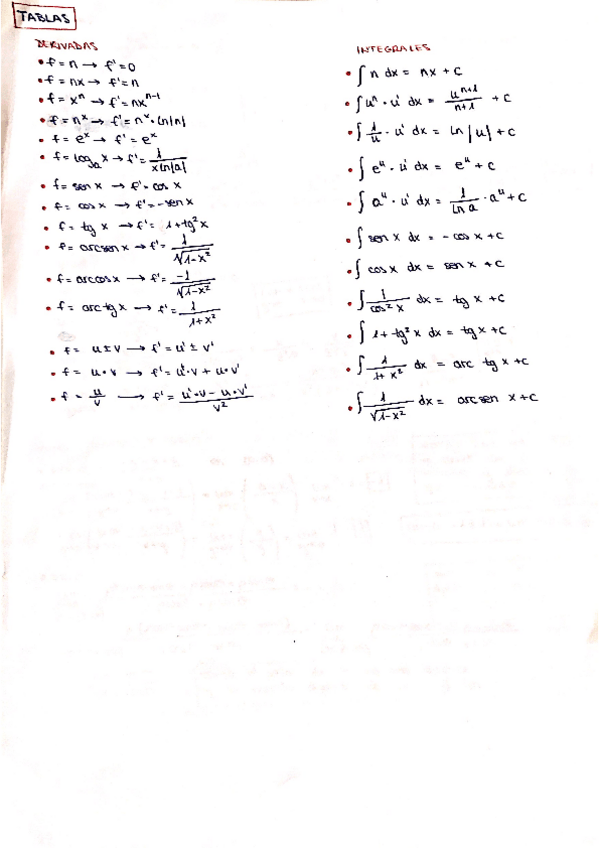 TABLAS
DERIVADAS
• f = n → f' = 0
• f = nx → f' = n
• f = xⁿ → f' = nxⁿ⁻¹
• f = nˣ → f' = nˣ · ln|n|
• f = eˣ → f' = eˣ
• f = logₐ x → f' = 1/(x ln|a|)
• f = sen x → f' = cos x
• f = cos x → f' = -sen x
• f = tg x → f' = 1 + tg²x
• f = arcsen x → f' = 1/√(1-x²)
• f = arccos x → f' = -1/√(1-x²)
• f = arctg x → f' = 1/(1+x²)
• f = u ± v → f' = u' ± v'
• f = u · v → f' = u' · v + u · v'
• f = u/v → f' = (u' · v - u · v')/v²
INTEGRALES
• ∫ n dx = nx + C
• ∫ uⁿ · u' dx = uⁿ⁺¹/(n+1) + C
• ∫ 1/u · u' dx = ln|u| + C
• ∫ eᵘ · u' dx = eᵘ + C
• ∫ aᵘ · u' dx = 1/(ln a) · aᵘ + C
• ∫ sen x dx = - cos x + C
• ∫ cos x dx = sen x + C
• ∫ 1/(cos² x) dx = tg x + C
• ∫ 1 + tg² x dx = tg x + C
• ∫ 1/(1+x²) dx = arc tg x + C
• ∫ 1/√(1-x²) dx = arc sen x + C